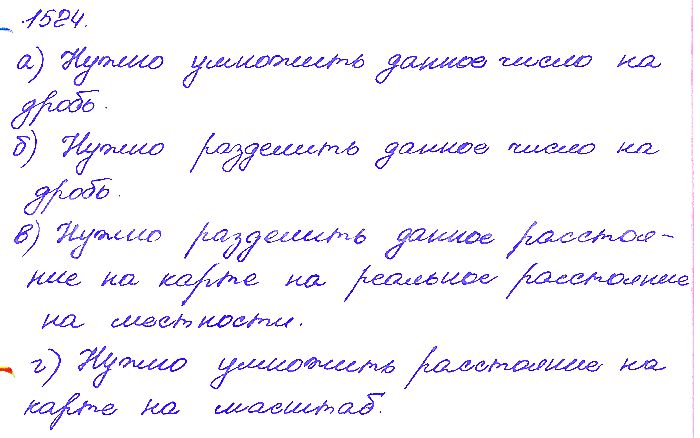 1524.
а) Нужно умножить данное число на
дробь.
б) Нужно разделить данное число на
дробь.
в) Нужно разделить данное расстоя-
ние на карте на реальное расстояние
на местности.
г) Нужно умножить расстояние на
карте на масштаб.